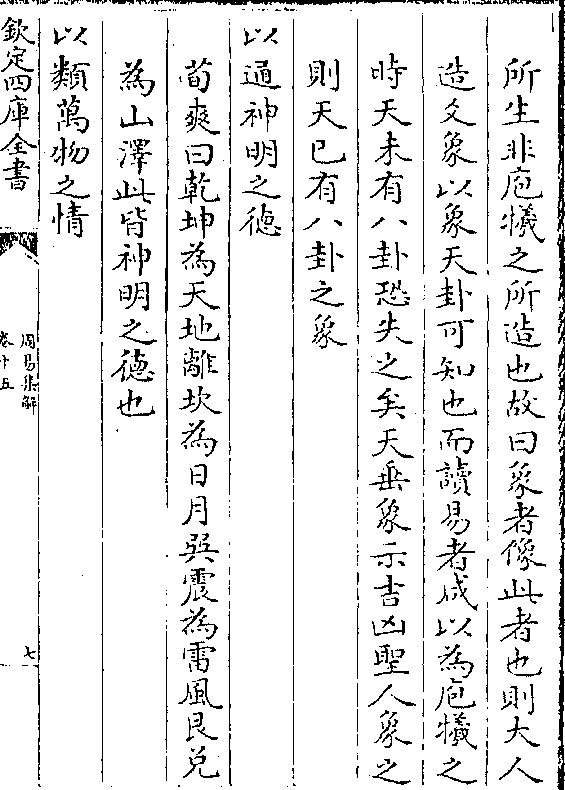 所生非庖犧之所造也故曰象者像此者也則大人
造爻象以象天卦可知也而讀易者咸以為庖犧之
時天未有八卦恐失之矣天垂象示吉凶聖人象之
則天已有八卦之象
以通神明之德
荀爽曰乾坤為天地離坎為日月巽震為雷風艮兌
為山澤此皆神明之德也
以類萬物之情
欽定四庫全書
周易集解
卷十五
七